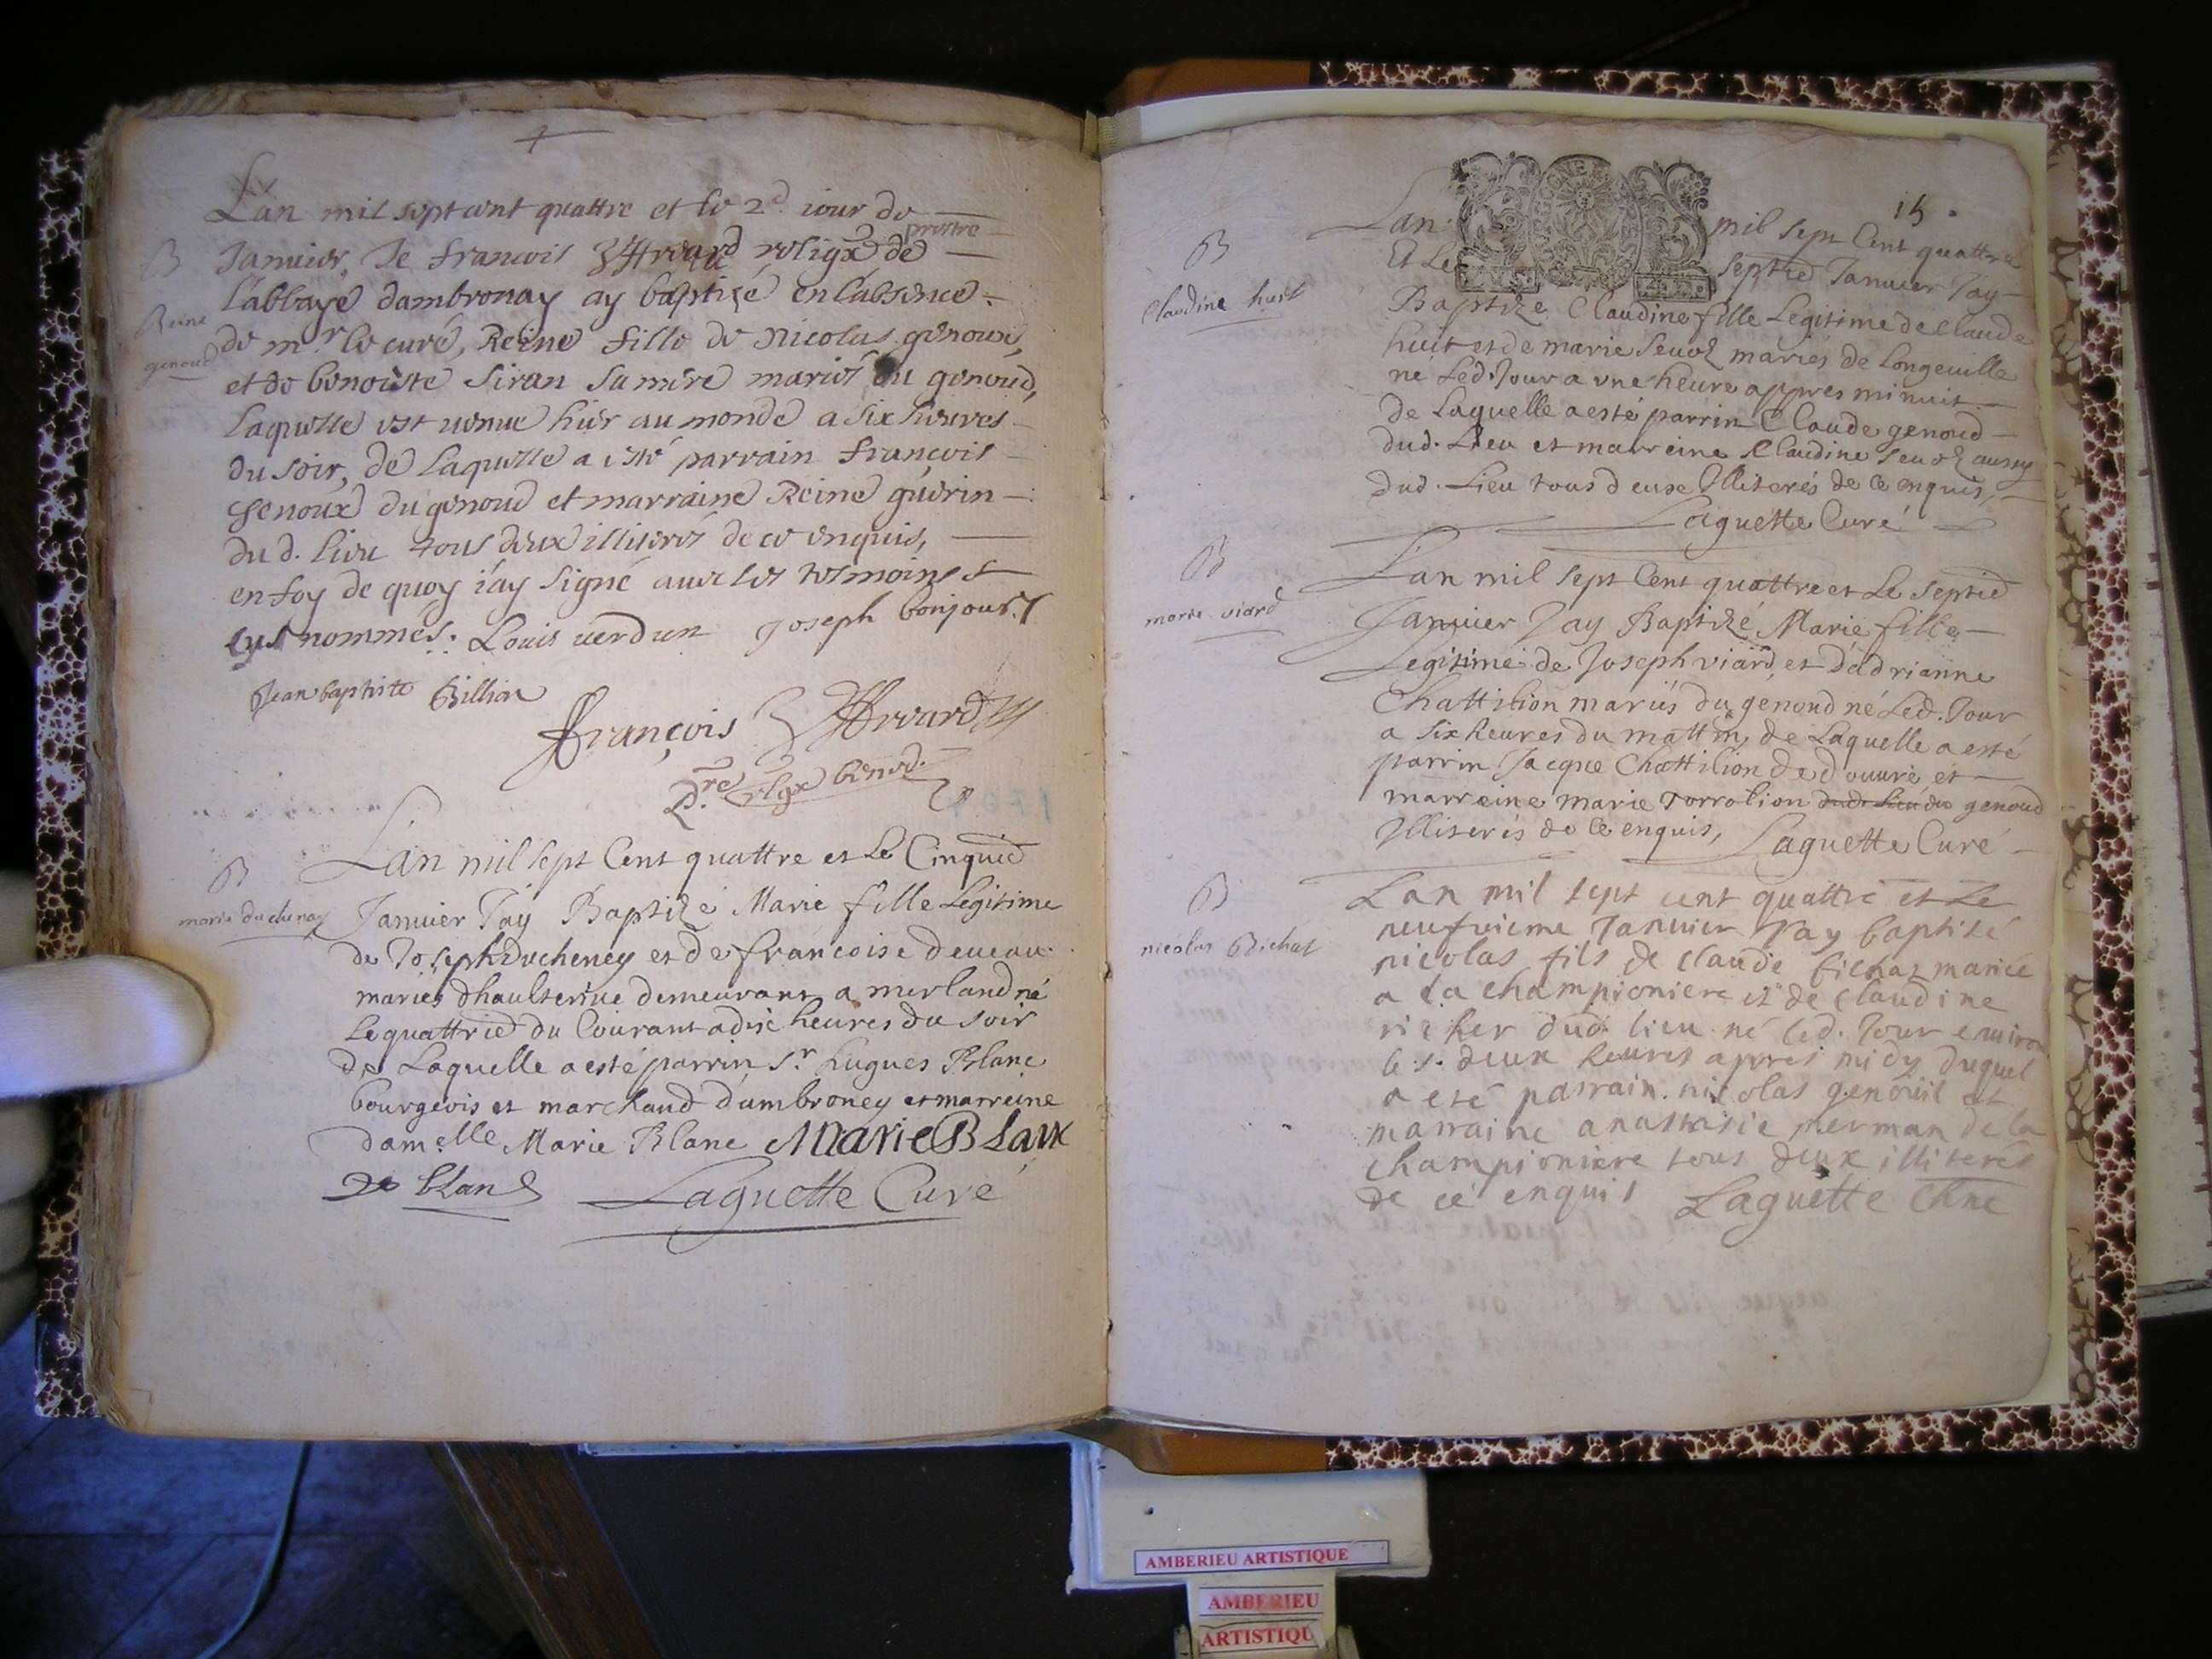 Lan mil sept cent quattre et le 2d. iour de
Januier, Je francois religx prestre de
l'abbaye dambronay ay baptizé en labsence
de mr. le curé, Reine fille de Nicolas genoux,
et de benoiste Siran sa mere mariés du genoud,
laquelle est uenue hier au monde a six heures
du soir, de laquelle a esté parrain françois
genoux du genoud et marraine Reine guérin
du d. lieu tous deux illiterés de ce enquis,
en foy de quoy i'ay signé auec les tesmoins
cys nommés. Louis uerdun Joseph bonjour
Jean baptiste Billion
François
Pre. rlgx bened.
B
Reine
genoud
Lan mil sept Cent quattre et Le Cinquie
Januier J'ay Baptizé Marie fille Legitime
de Joseph Ducheney et de francoise deueau
mariés dhaulteriue demeurant a merland né
le quattrie du Courant a dix heures du soir
de Laquelle a esté parrin Sr. hugues Blanc
bourgeois et marchand d'ambroney et marreine
damelle Marie Blanc Marie BLanc
blanc Laguette Curé
B
marie duchenay
15.
Lan mil sept Cent quattre
Et Le septie Januier Jay
Baptizé Claudine fille Legitime de Claude
huit et de marie Seuoz mariés de Longeuille
né Led. Jour a vne heure appres minuit
de Laquelle a esté parrin Claude genoud
dud. Lieu et marreine Claudine Seuoz aussy
dud. Lieu tous deux Illiterés de ce enquis,
Laguette Curé
B
Claudine huit
Lan mil sept Cent quattre et Le septie
Januier Jay Baptizé Marie fille
Legitime de Joseph viard, et d'adrianne
Chattilion mariés du genoud né Led. Jour
a six heures du mattin, de Laquelle a esté
parrin Jacque Chattilion de douuré et
marreine marie dud. lieu du genoud
Illiterés de ce enquis, Laguette Curé
B
marie viard
Lan mil sept cent quattre et Le
neufuieme Januier Jay baptisé
nicolas fils de claude bichat mariée
a La championiere et de claudine
richer dud. lieu né led. Jour enuiron
les deux heures apres midy duquel
a esté parrain nicolas genouil et
marraine anastasie perman de la
championiere tous deux illiterés
de cé enquis Laguette
B
nicolas Bichat
AMBERIEU ARTISTIQUE
AMBERIEU
ARTISTIQU